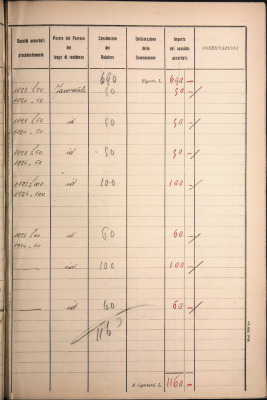 Sussidi accordati precedentemente
Parere del Parroco del luogo di residenza
Conclusione del Relatore
Deliberazione della Commissione
Importo del sussidio accordato
OSSERVAZIONI
690 Riporto L. 690 -
1923 £ 50 Favorevole 50 50 -
1924 - 50
1923 £ 50 id 50 50 -
1924 - 50
1923 £ 50 id 50 50 -
1924 - 50
1923 £ 100 id 100 100 -
1924 - 100
id 60 60 -
id 100 100 -
id 60 60 -
A riportarsi L. 1160 -